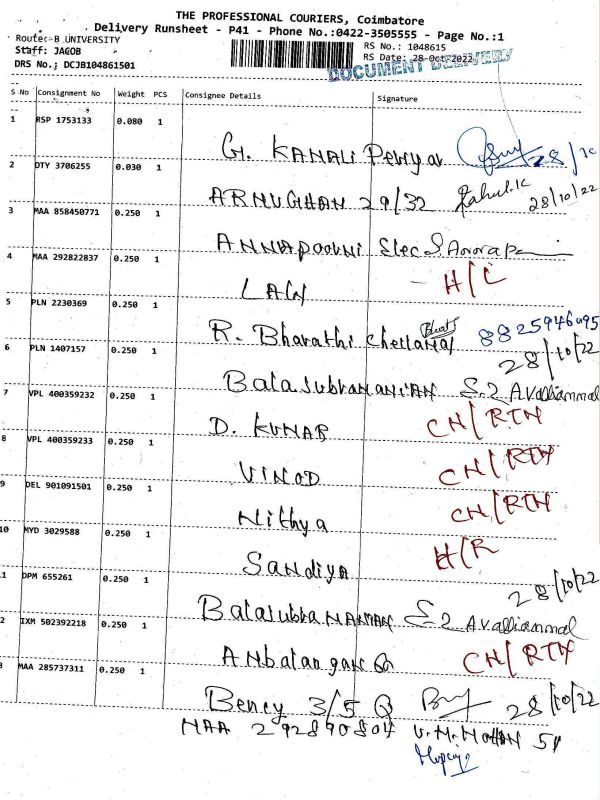 THE PROFESSIONAL COURIERS, Coimbatore
Delivery Runsheet - P41 - Phone No.:0422-3505555 - Page No.:1
Route:-B UNIVERSITY
Staff: JAGOB
DRS No.: DCJB104861501
RS No.: 1048615
RS Date: 28-Oct-2022
DOCUMENT DELIVERY
S No Consignment No Weight PCS Consignee Details Signature
1 RSP 1753133 0.080 1
G. KANALI 28/10
2 DTY 3706255 0.030 1
ARMUGHAN 29/32 Rahul.K 28/10/22
3 MAA 858450771 0.250 1
ANNAPOORNI Elec
4 MAA 292822837 0.250 1
LAW H/L
5 PLN 2230369 0.250 1
R. Bharathi 8825946095
6 PLN 1407157 0.250 1 28/10/22
BALASUBRAMANIAN S.2 Avalliammal
7 VPL 400359232 0.250 1
D. KUNAR CN/RTN
8 VPL 400359233 0.250 1
VINOD CN/RTN
9 DEL 901091501 0.250 1
Nithya CN/RTN
10 MYD 3029588 0.250 1
SANDIYA H/R
1 DPM 655261 0.250 1 28/10/22
2 Avalliammal
2 IXM 502392218 0.250 1
CN/RTN
3 MAA 285737311 0.250 1
Bency 3/5 Q 28/10/22
MAA 292890804 51